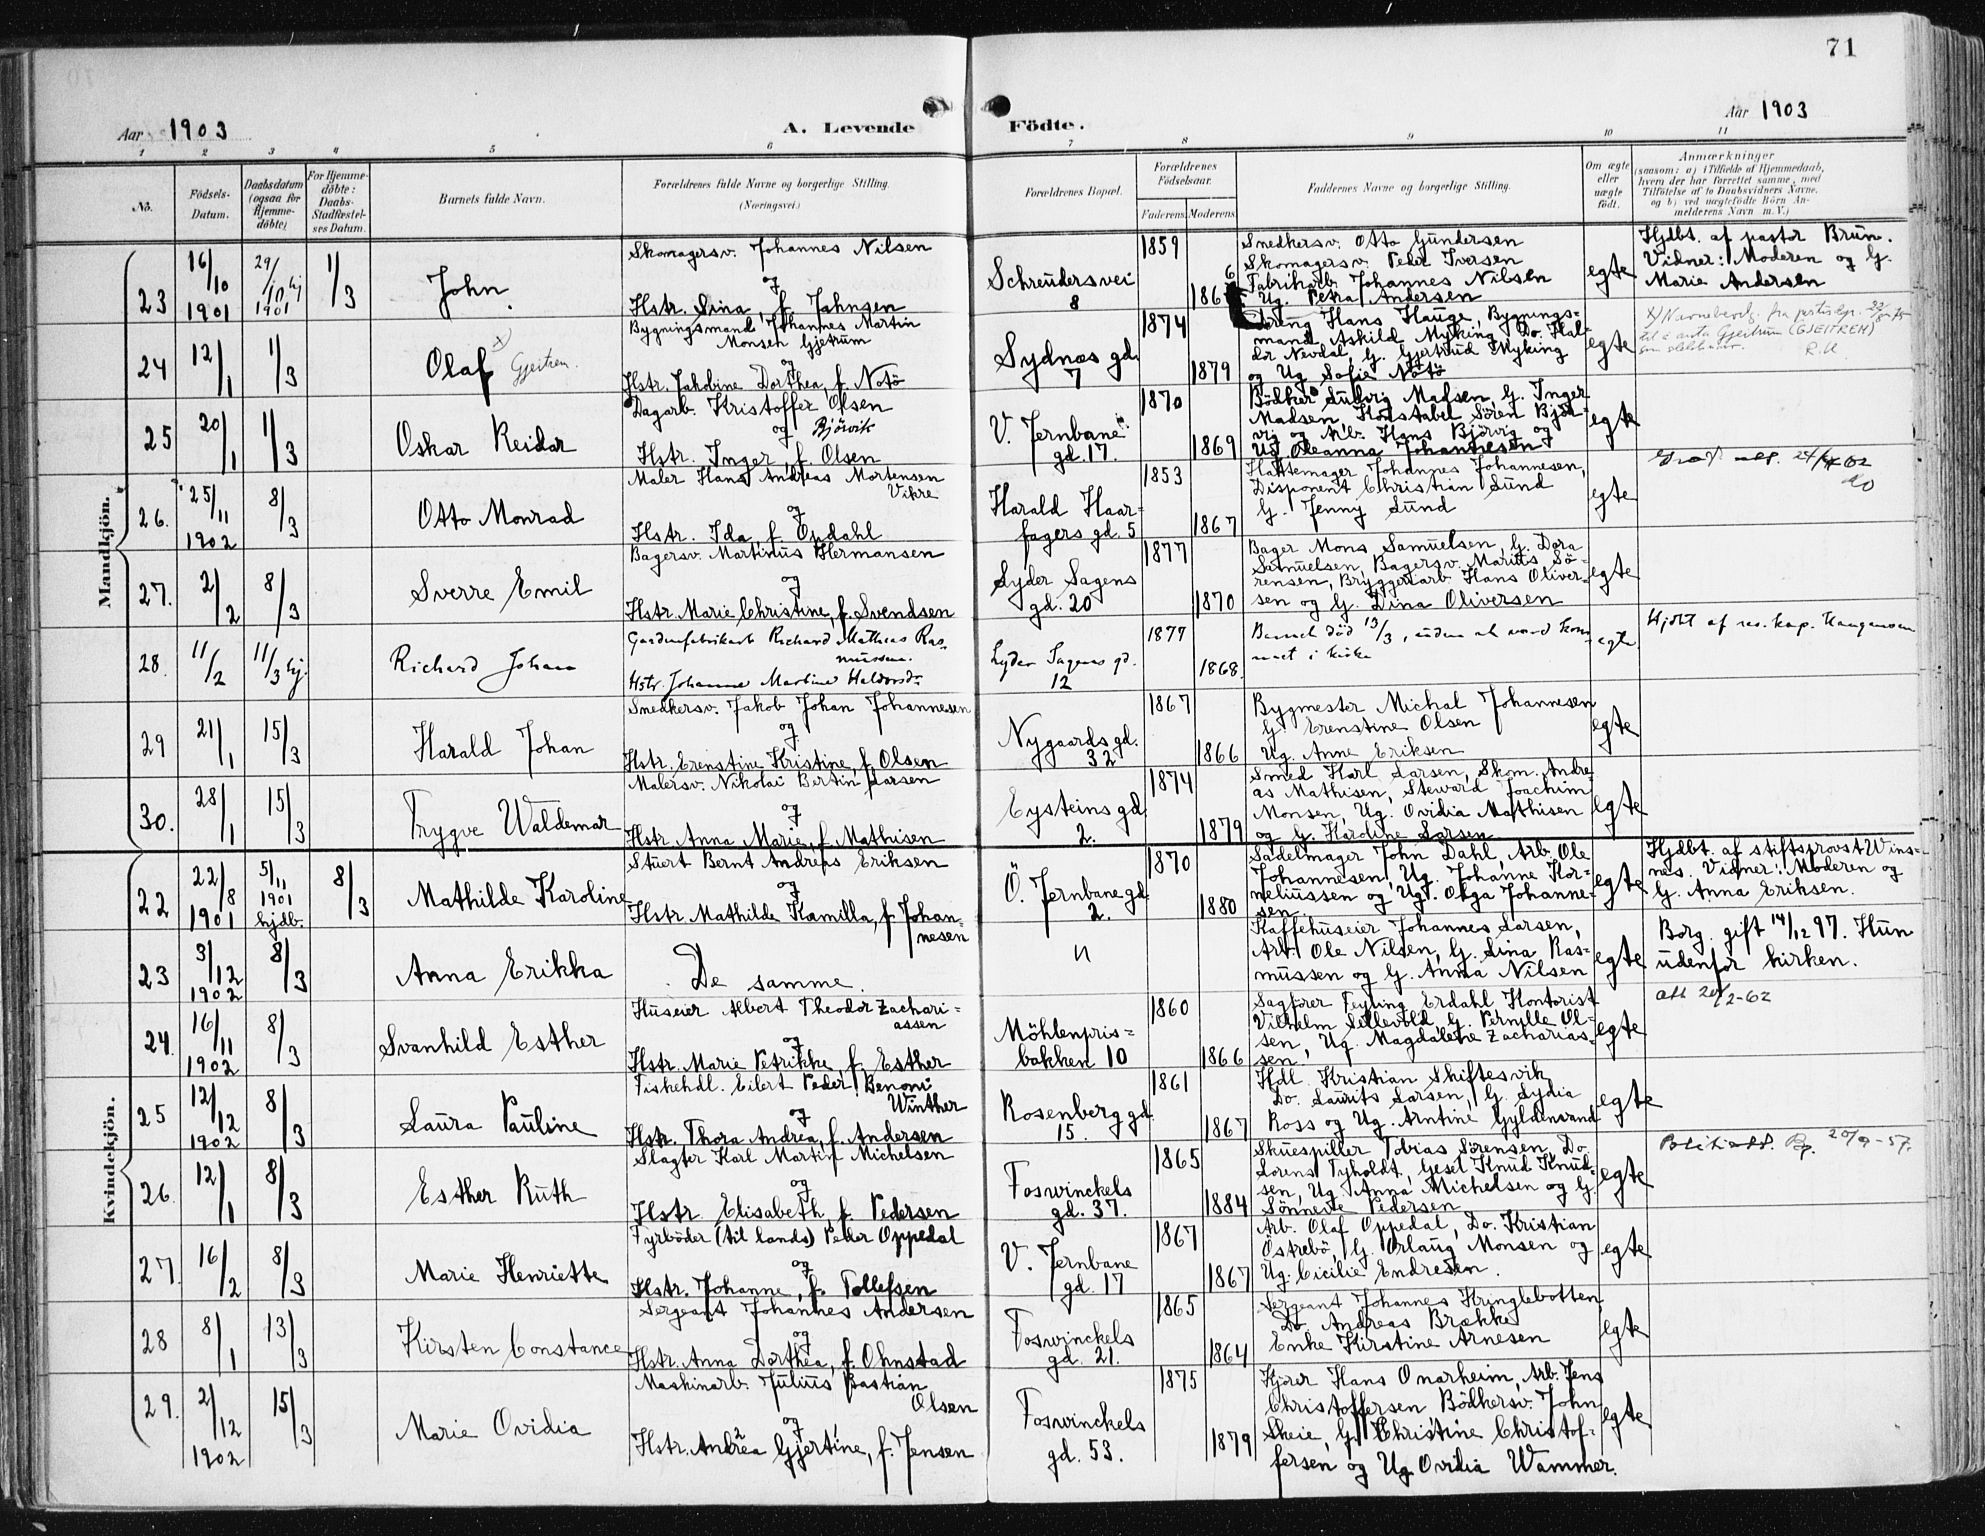 71
Aar 1903
A. Levende
Födte.
Aar 1903
1 2 3 4 5 6 7 8 9 10 11
No.
Födsels-
Datum.
Daabsdatum
(ogsaa for
Hjemme-
döbte)
For Hjemme-
döbte:
Daabs-
Stadfæstel-
ses Datum.
Barnets fulde Navn.
Forældrenes fulde Navne og borgerlige Stilling.
(Næringsvei.)
Forældrenes Bopæl.
Forældrenes
Födselsaar.
Faderens Moderens
Faddernes Navne og borgerlige Stilling.
Om ægte
eller
uægte
födt.
Anmærkninger
(saasom: a) i Tilfælde af Hjemmedaab,
hvem der har forrettet samme, med
Tilföielse af to Daabsvidners Navne,
og b) ved uægtefödte Börn An-
melderens Navn m. V.)
Mandkjön.
23
16/10
1901
29/10 hj
1901
1/3
John
Skomagersv. Johannes Nilsen
og
Hstr. Sina, f. Jahnsen
Schreudersvei
8
1859
186
Snedkersv. Otto Gundersen
Skomagersv. Peder Iversen
Fabrikarb. Johannes Nilsen
Ug. Petra Andersen
egte
Hjdbt. af pastor Brun.
Vidner: Moderen og G.
Marie Andersen
24
12/1
1/3
Olaf x) Gjeitrem.
Bygningsmand Johannes Martin
Monsen Gjetrum
og
Hstr. Jakobine Dorthea, f. Notö
Sydnæs gd.
7
1874
1879
Dreng Hans Hauge, Bygnings-
mand Askild Myking, Do. Hal-
dor Nevdal, G. Gjertrud Myking
og Ug. Sofie Notö
egte
x) Navnebevlg. fra
(GJEITREM)
R.U.
25
20/1
1/3
Oskar Reidar
Dagarb. Kristoffer Olsen
og Bjövik
Hstr. Inger, f. Olsen
V. Jernbane
gd. 17.
1870
1869
Bödker Ludvig Madsen, G. Inger
Madsen, Konstabel Sören Björ-
vig og Arb. Hans Björvig og
Ug. Oleanna Johannesen
egte
26.
25/11
1902
8/3
Otto Monrad
Maler Hans Andreas Mortensen
Vikre
og
Hstr. Ida, f. Opdahl
Harald Haar-
fagers gd. 5
1853
1867
Hattemager Johannes Johannesen,
Disponent Christian Sund
G. Jenny Sund
egte
27.
2/2
8/3
Sverre Emil
Bagersv. Martinus Hermansen
og
Hstr. Marie Christine, f. Svendsen
Lyder Sagens
gd. 20
1877
1870
Bager Mons Samuelsen, G. Dora
Samuelsen, Bagersv. Marius Sö-
rensen, Bryggeriarb. Hans Oliver-
sen og G. Dina Oliversen
egte
28.
11/2
11/3 hj.
Richard Johan
Richard Mathias Ras-
mussen.
Hstr. Johanne Martine Haldorsdr.
Lyder Sagens gd.
12
1877
1868.
Barnet död 13/3, uden at være kom-
met i kirke
egte
Hjdbt af res. kap.
29
21/1
15/3
Harald Johan
Snedkersv. Jakob Johan Johannesen
og
Hstr. Erenstine Kristine, f. Olsen
Nygaards gd.
32
1867
1866
Bygmester Michal Johannesen
G. Erenstine Olsen
Ug. Anne Eriksen
egte
30.
28/1
15/3
Trygve Waldemar
Malersv. Nikolai Bertin Larsen
og
Hstr. Anna Marie, f. Mathisen
Eysteins gd
2.
1874
1879
Smed Karl Larsen, Skom. Andre-
as Mathisen, Steward Joachim
Monsen, Ug. Ovidia Mathisen
og G. Karoline Larsen
egte
Kvindekjön.
22
22/8
1901
5/11
1901
hjdb.
8/3
Mathilde Karoline
Stuert Bernt Andreas Eriksen
og
Hstr. Mathilde Kamilla, f. Johan-
nesen
Ö. Jernbane gd
2.
1870
1880
Sadelmager John Dahl, Arb. Ole
Johannesen, Ug. Johanne Kor-
neliussen og Ug. Olga Johanne-
sen
egte
Hjdbt. af stiftsprovst Wins-
nes. Vidner: Moderen og
G. Anna Eriksen.
23
3/12
1902
8/3
Anna Erikka
De samme.
"
Kaffehuseier Johannes Larsen,
Arb. Ole Nilsen, G. Lina Ras-
mussen og G. Anna Nilsen
egte
Borg. gift 14/12 97. Hun
udenfor kirken.
24.
16/11
1902
8/3
Svanhild Esther
Huseier Albert Theodor Zachari-
assen
og
Hstr. Marie Petrikke, f. Esther
Möhlenpris-
bakken 10
1860
1866
Sagförer Feyling Erdahl Kontorist
Vilhelm Sellevold, G. Pernille Ol-
sen, Ug. Magdalene Zacharias-
sen.
egte
att 20/2-62
25
12/12
1902
8/3
Laura Pauline
Fiskehdl. Eilert Peder Benoni
Winther
og
Hstr. Thora Andrea, f. Andersen
Rosenberg gd
15.
1861
1867
Hdl. Kristian Skiftesvik
Do. Laurits Larsen, G. Lydia
Ross og Ug. Arntine Gyldenvand
egte
26.
12/1
8/3
Esther Ruth
Slagter Karl Martin Michelsen
og
Hstr. Elisabeth f. Pedersen
Foswinckels
gd. 37.
1865
1884
Skuespiller Tobias Sörensen, Do.
Lorens Tyholdt, Gesel Knud Knud-
sen, Ug. Anna Michelsen og G.
Sönneve Pedersen
egte
20/9-57.
27.
16/2
8/3
Marie Henriette
Fyrböder (til lands) Peder Oppedal
og
Hstr. Johanne, f. Tollefsen
V. Jernbane
gd. 17
1867
1867
Arb. Olaf Oppedal, Do. Kristian
Östrebö, G. Orlaug Monsen og
Ug. Cicilie Endresen.
egte
28
8/1
13/3
Kirsten Constance
Sergeant Johannes Andersen
og
Hstr. Anna Dorthea, f. Ohnstad
Foswinckels
gd. 21.
1865
1864
Sergeant Johannes Kringlebotten
Do. Andreas Brække
Enke Kirstine Arnesen
egte
29.
2/12
1902
15/3
Marie Ovidia
Maskinarb. Julius Bastian
Olsen
og
Hstr. Andrea Gjertine, f. Jensen
Foswinckels
gd. 53.
1875
1879
Kjörer Hans Onarheim, Arb. Jens
Christoffersen Bödkersv. John
Skeie, G. Christine Christof-
fersen og Ug. Ovidia Wammer.
egte